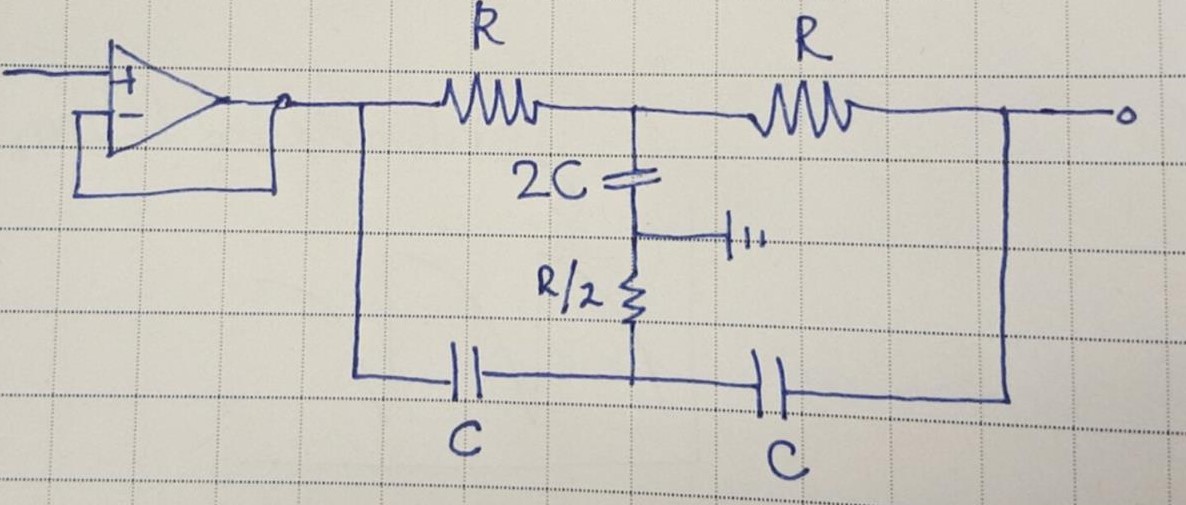 R R
+
-
2C
R/2
C C